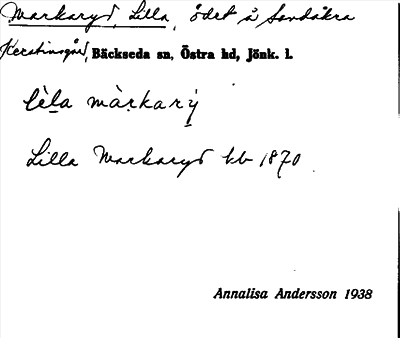 Markaryd, Lilla, ödet å Sandåkra
Kerstinsgård, Bäckseda sn, Östra hd, Jönk. l.
lìla màrkarý
Lilla Markaryd kb 1870
Annalisa Andersson 1938